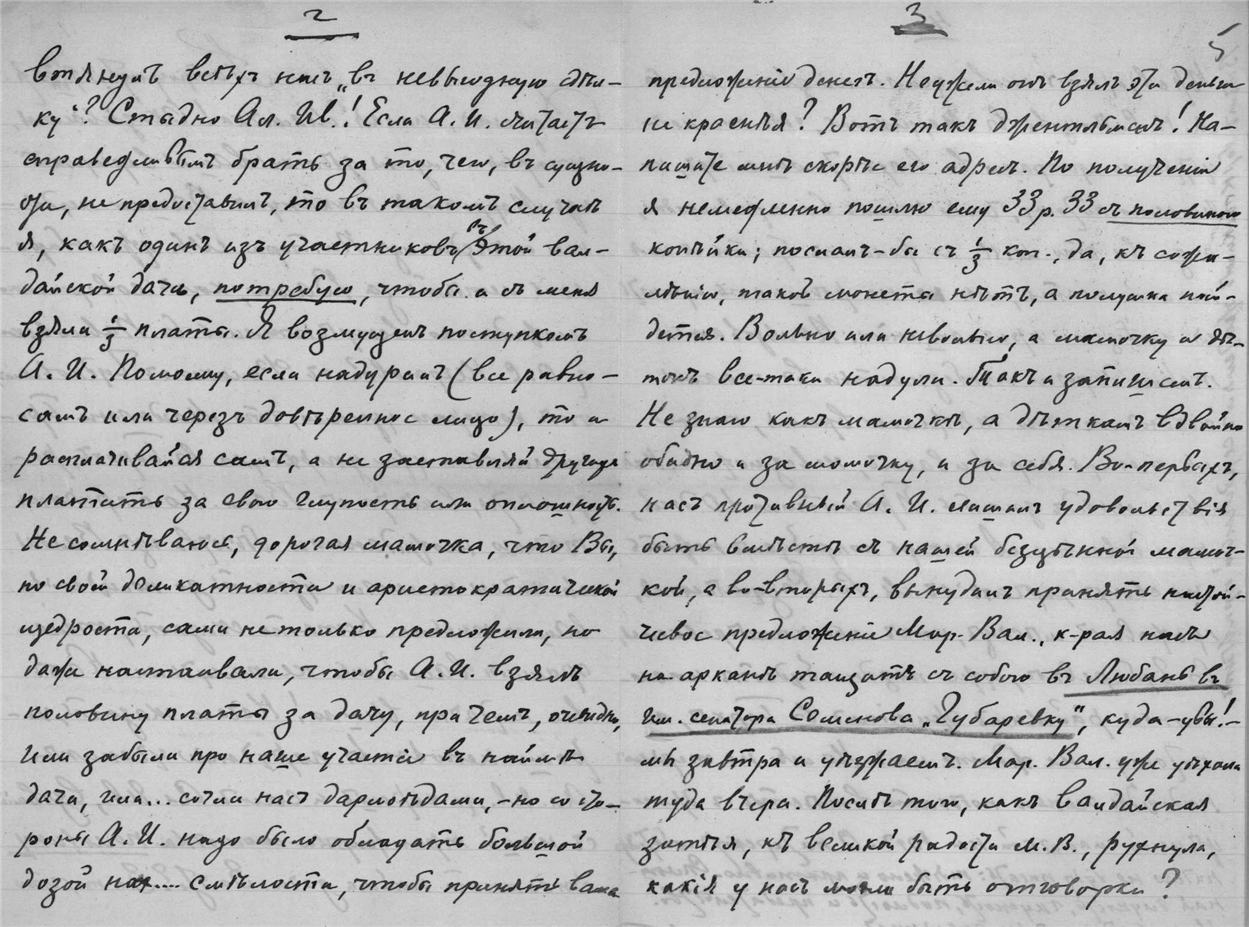 2
втянулъ всѣхъ насъ „въ невыгодную сдѣл-
ку“? Стыдно Ал. Ив.! Если А. И. считаетъ
справедливымъ брать за то, чего, въ сущно-
сти, не предоставилъ, то въ такомъ случаѣ
я, какъ одинъ изъ участниковъ въ этой вал-
дайской дачѣ, потребую, чтобы и съ меня
взяли 1/3 платы. Я возмущенъ поступкомъ
А. И. Помоему, если надурилъ (все равно –
самъ или черезъ довѣренное лицо), то и
расплачивайся самъ, а не заставляй другихъ
платить за свою глупость или оплошность.
Не сомнѣваюсь, дорогая мамочка, что Вы,
по своей деликатности и аристократической
щедрости, сами не только предложили, но
даже настаивали, чтобы А. И. взялъ
половину платы за дачу, при чемъ, очевидно,
или забыли про наше участіе въ наймѣ
дачи, или... сочли насъ дармоѣдами, – но со сто-
роны А. И. надо было обладать большой
дозой нах.... смѣлости, чтобы принять ваше
3
5
предложеніе денегъ. Неужели онъ взялъ эти деньги
не краснѣя? Вотъ такъ джентльменъ! На-
пишите мнѣ скорѣе его адресъ. По полученіи
я немедленно пошлю ему 33 р. 33 съ половиною
копѣйки; послалъ-бы съ 1/3 коп., да, къ сожа-
лѣнію, такой монеты нѣтъ, а полушка най-
дется. Вольно или невольно, а мамочку и дѣ-
токъ все-таки надули. Такъ и запишемъ.
Не знаю какъ мамочкѣ, а дѣткамъ вдвойнѣ
обидно и за мамочку, и за себя. Во-первыхъ,
насъ противный А. И. лишилъ удовольствія
быть вмѣстѣ съ нашей безцѣнной мамоч-
кой, а во-вторыхъ, вынудилъ принять настой-
чивое предложеніе Мар. Вал., к-рая насъ
на арканѣ тащитъ съ собою въ Любань въ
им. сенатора Семенова „Губаревку“, куда – увы! –
мы завтра и уѣзжаемъ. Мар. Вал. уже уѣхала
туда вчера. Послѣ того, какъ валдайская
затѣя, къ великой радости М. В., рухнула,
какія у насъ могли быть отговорки?